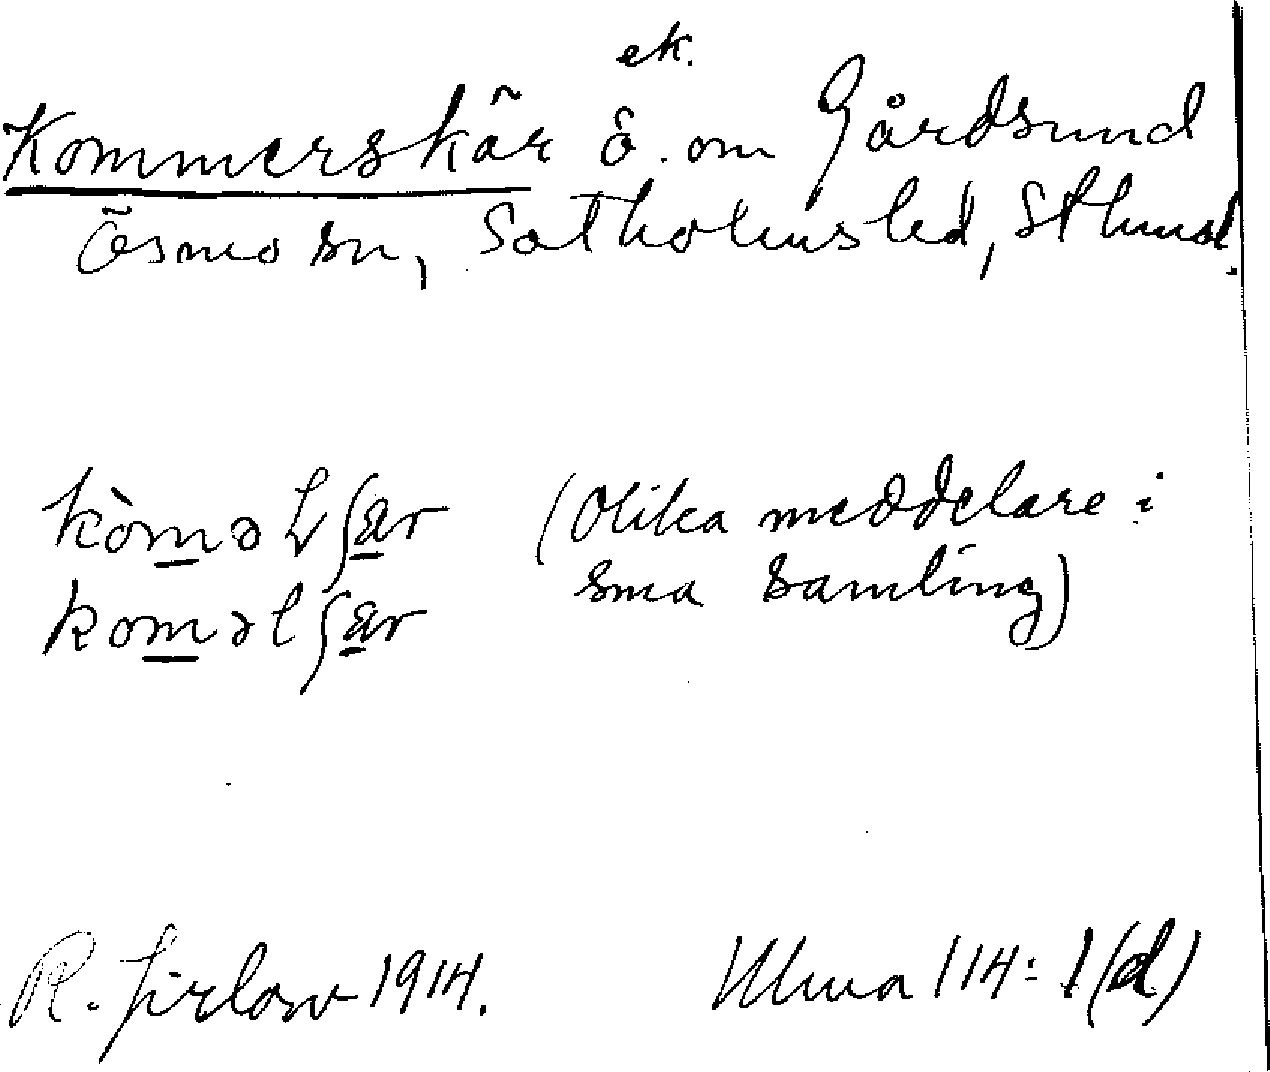 ek.
Kommerskär ö. om Gårdsund
Ösmo sn, Sotholmsled, Sthmsl.
(Olika meddelare i
sma samling)
R. Jirlow 1914.
Ulma 114: 1(d)